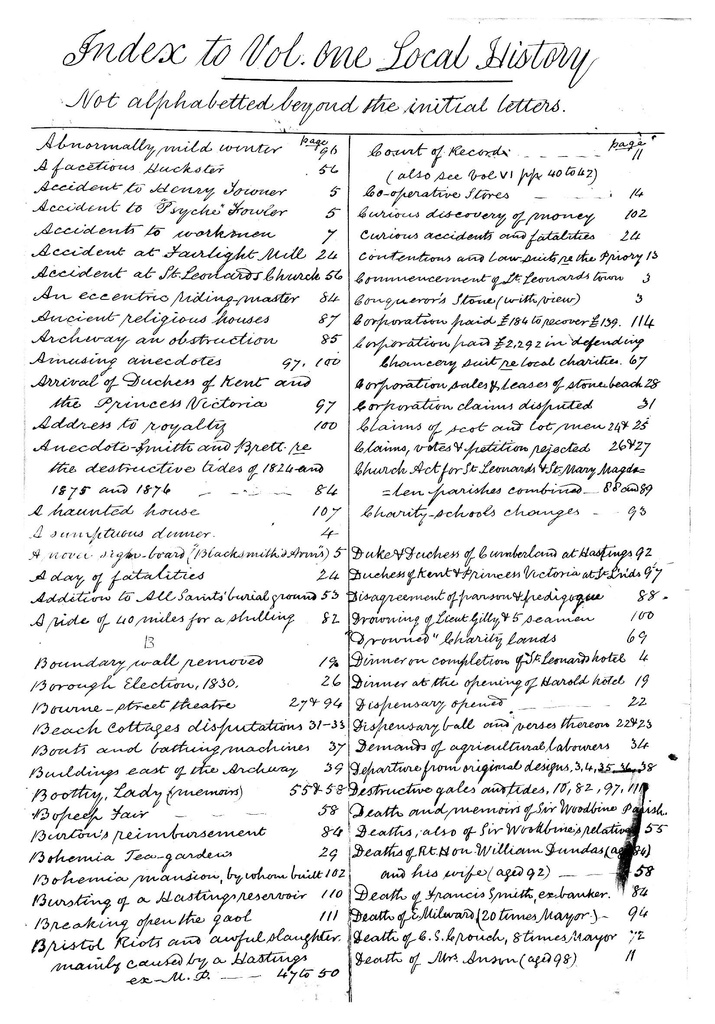 Index to Vol. one Local History
Not alphabetted beyond the initial letters.
page
Abnormally mild winter 96
A facetious Huckster 56
Accident to Henry Towner 5
Accident to "Psyche" Fowler 5
Accidents to workmen 7
Accident at Fairlight Mill 24
Accident at St. Leonards Church 56
An eccentric riding-master 84
Ancient religious houses 87
Archway an obstruction 85
Amusing anecdotes 97, 100
Arrival of Duchess of Kent and
the Princess Victoria 97
Address to royalty 100
Anecdote-Smith and Brett-re
the destructive tides of 1824 and
1875 and 1876 - - - 84
A haunted house 107
A sumptuous dinner. 4
A novel sign-board (Blacksmith's Arms) 5
A day of fatalities 24
Addition to All Saints' burial ground 53
A ride of 40 miles for a shilling 82
B
Boundary wall removed 19
Borough Election, 1830. 26
Bourne-street theatre 27 & 94
Beach Cottages disputations 31-33
Boats and bathing machines 37
Buildings east of the Archway 39
Boothby, Lady (memoirs) 55 & 58
Bopeep Fair - - - 58
Burton's reimbursement 84
Bohemia Tea-gardens 29
Bohemia mansion, by whom built 102
Bursting of a Hastings reservoir 110
Breaking open the gaol 111
Bristol Riots and awful slaughter
mainly caused by a Hastings
ex-M.P. - - - 47 to 50
page
Court of Record - - - 11
(also see Vol VI pp 40 to 42)
Co-operative Stores - - - 14
Curious discovery of money 102
Curious accidents and fatalities 24
Contentions and law-suits re the Priory 13
Commencement of St. Leonards town 3
Conqueror's Stone (with view) 3
Corporation paid £184 to recover £139. 114
Corporation paid £2,292 in defending
Chancery suit re local charities. 67
Corporation sales & leases of stone beach 28
Corporation claims disputed 31
Claims of scot and lot, men 24 & 25
Claims, votes & petition rejected 26 & 27
Church Act for St Leonards & St. Mary Magda=
=len parishes combined - - 88 and 89
Charity-schools changes - 93
Duke & Duchess of Cumberland at Hastings 92
Duchess of Kent & Princess Victoria at St. L'nds 97
Disagreement of parson & pedigogue 88
Drowning of Lieut Gilby & 5 seamen 100
"Drowned" Charity lands 69
Dinner on completion of St. Leonards hotel 4
Dinner at the opening of Harold hotel 19
Dispensary opened - - - 22
Dispensary ball and verses thereon 22 & 23
Demands of agricultural labourers 34
Departure from original designs, 3, 4, 35, 36, 38
Destructive gales and tides, 10, 82, 97, 111
Death and memoirs of Sir Woodbine Parish.
Deaths, also of Sir Woodbine's relatives 55
Deaths of Rt. Hon. William Dundas (aged 84)
and his wife (aged 92) - - - 58
Death of Francis Smith, ex banker. 84
Death of E Milward (20 times Mayor) - 94
Death of C. S. Crouch, 8 times Mayor 72
Death of Mrs. Anson (aged 98) 11